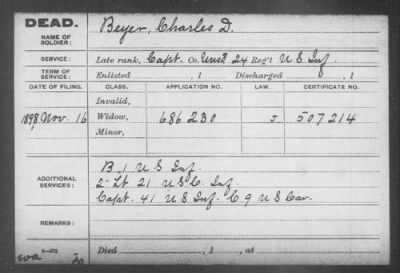 DEAD.
NAME OF SOLDIER: Beyer, Charles D.
SERVICE: Late rank, Capt. Co. Unasd 24 Reg't U S Inf
TERM OF SERVICE: Enlisted , 1 Discharged , 1
DATE OF FILING. CLASS. APPLICATION NO. LAW. CERTIFICATE NO.
Invalid,
1898, Nov. 16 Widow, 686 230 507214
Minor,
ADDITIONAL SERVICES: B 1 U S Inf.
2" Lt 21 U S C. Inf
Capt. 41 U S Inf. C 9 U S Cav.
REMARKS:
Died , 1 , at